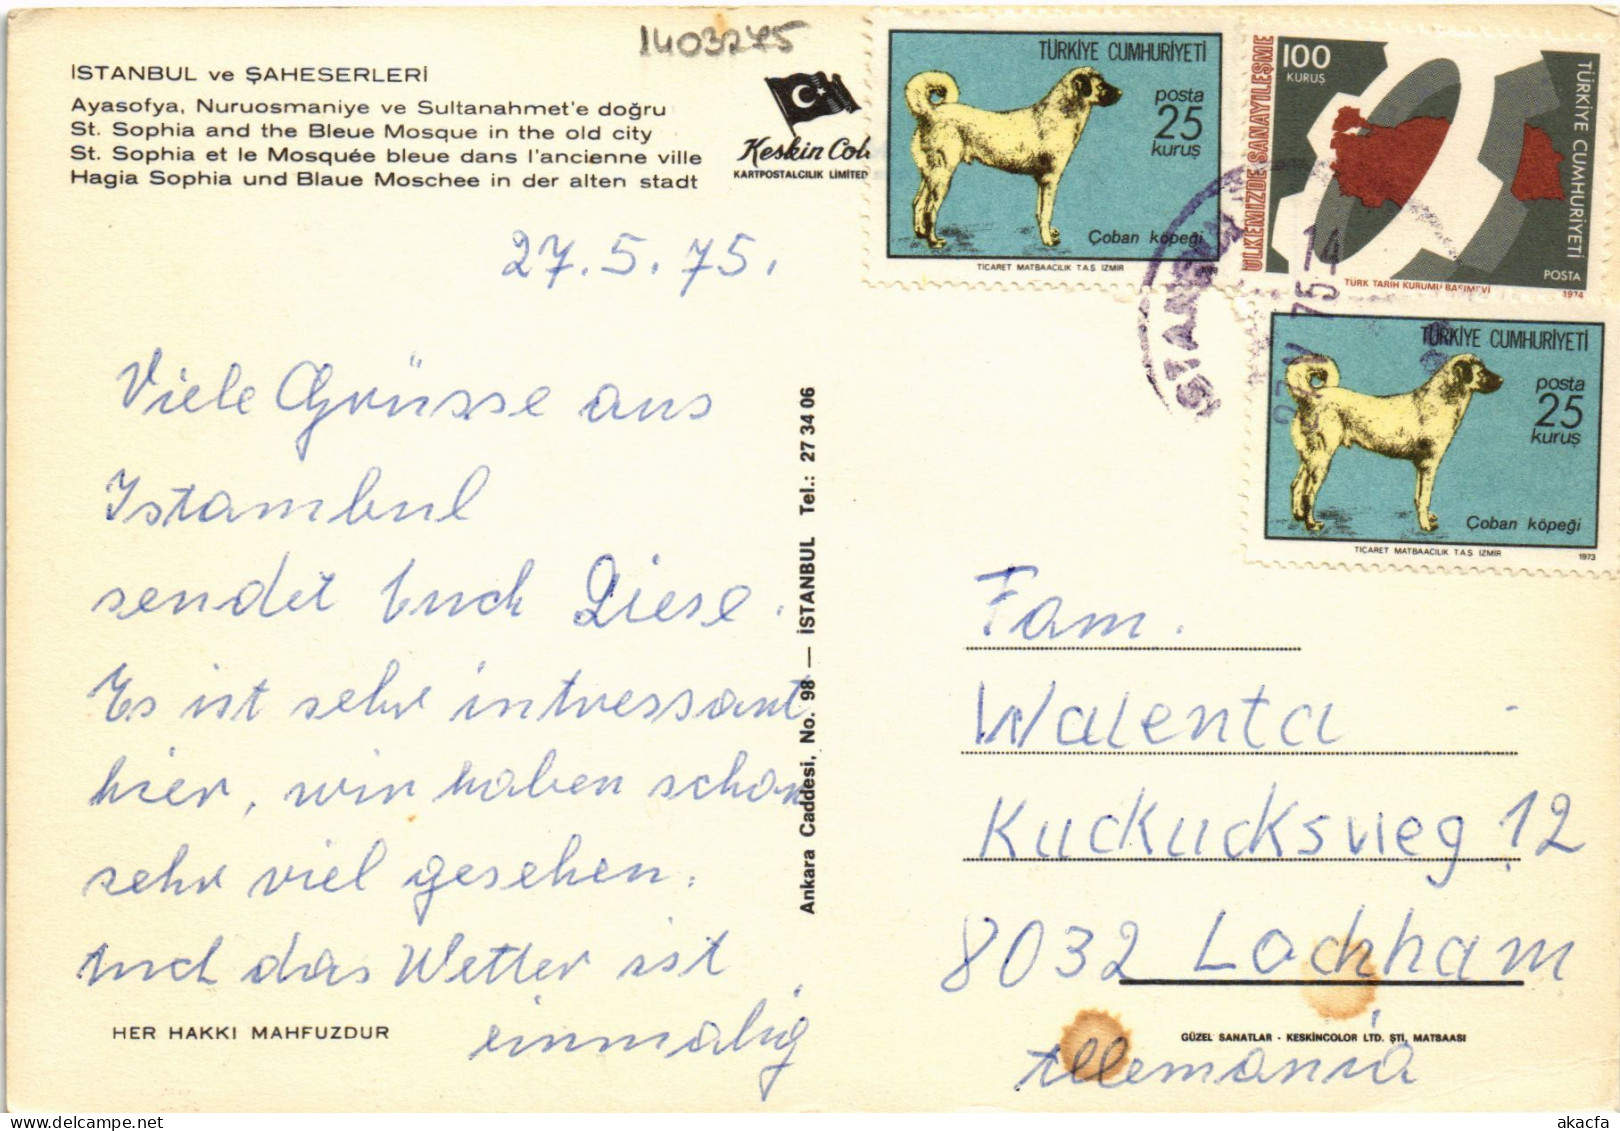 1403275
İSTANBUL ve ŞAHESERLERİ
Ayasofya, Nuruosmaniye ve Sultanahmet'e doğru
St. Sophia and the Bleue Mosque in the old city
St. Sophia et le Mosquée bleue dans l'ancienne ville
Hagia Sophia und Blaue Moschee in der alten stadt
Keskin Col
KARTPOSTALCILIK LIMITED
TÜRKİYE CUMHURİYETİ
posta
25
kuruş
Çoban köpeği
TİCARET MATBAACILIK T.A.Ş. İZMİR
100
KURUŞ
ÜLKEMİZDE SANAYİLEŞME
TÜRKİYE CUMHURİYETİ
POSTA
TÜRK TARİH KURUMU BASIMEVİ
1974
TÜRKİYE CUMHURİYETİ
posta
25
kuruş
Çoban köpeği
TİCARET MATBAACILIK T.A.Ş. İZMİR
1973
İSTANBUL
75-14
27.5.75.
Viele Grüsse aus
Istambul
sendet Euch Diese.
Es ist sehr intressant
hier, wir haben schon
sehr viel gesehen.
Auch das Wetter ist
einmalig
HER HAKKI MAHFUZDUR
Ankara Caddesi, No. 98 — İSTANBUL Tel.: 27 34 06
Fam.
Walenta
Kuckucksweg 12
8032 Lochham
GÜZEL SANATLAR - KESKİNCOLOR LTD. ŞTİ. MATBAASI
Allemania
akacfa